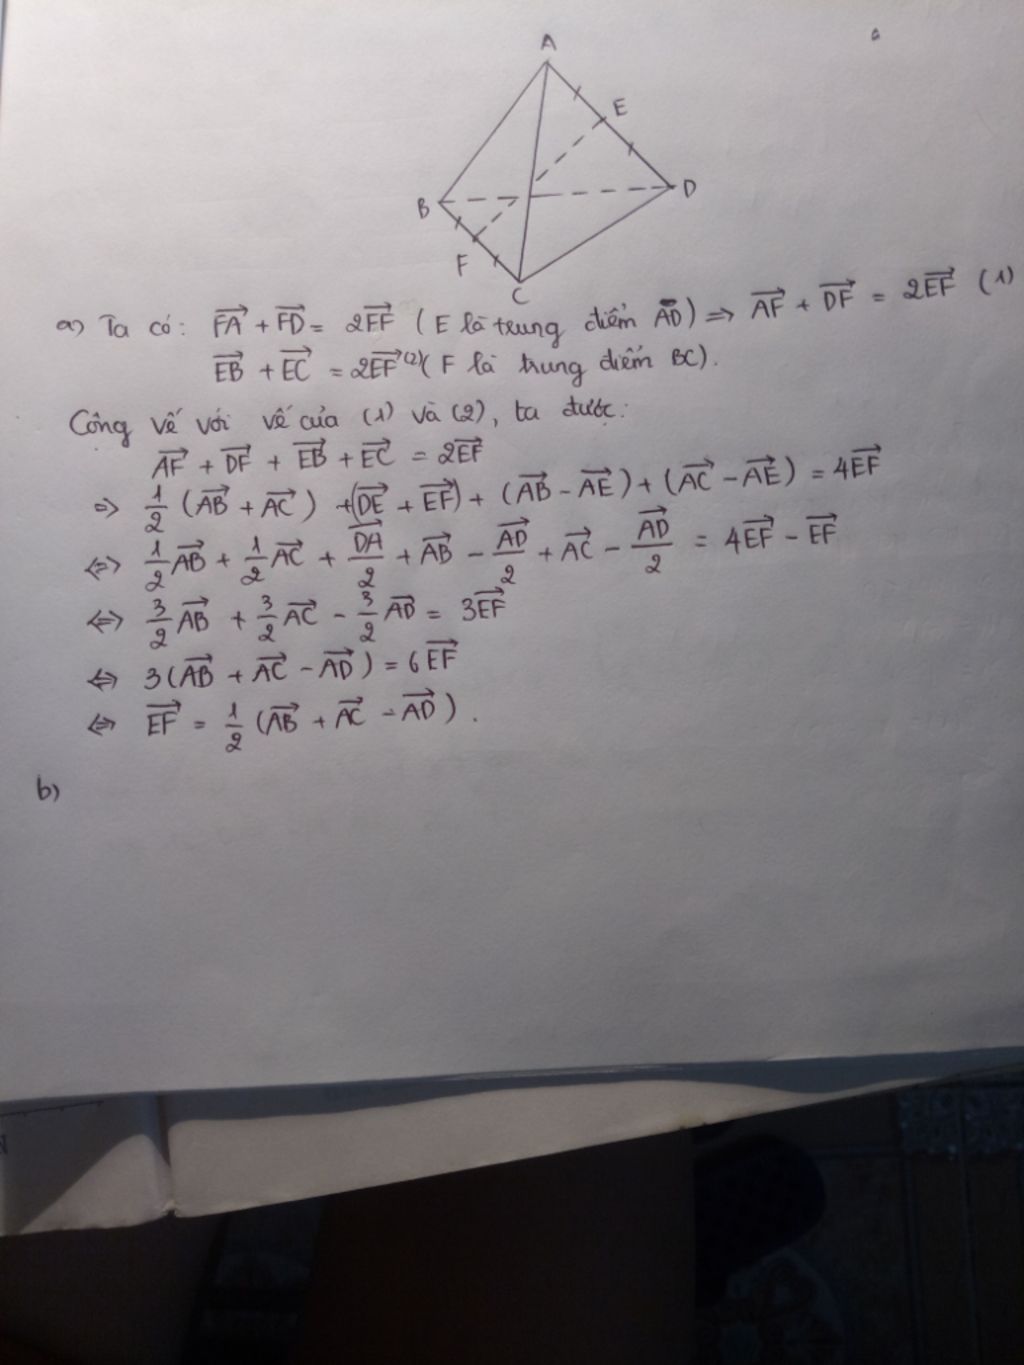 A
E
B
D
F
C
a) Ta có: \overrightarrow{FA} + \overrightarrow{FD} = 2\overrightarrow{EF} (E là trung điểm AD) ⇒ \overrightarrow{AF} + \overrightarrow{DF} = 2\overrightarrow{EF} (1)
\overrightarrow{EB} + \overrightarrow{EC} = 2\overrightarrow{EF} (2) (F là trung điểm BC).
Công vế với vế của (1) và (2), ta được:
\overrightarrow{AF} + \overrightarrow{DF} + \overrightarrow{EB} + \overrightarrow{EC} = 2\overrightarrow{EF}
⇒ \frac{1}{2} (\overrightarrow{AB} + \overrightarrow{AC}) + (\overrightarrow{DE} + \overrightarrow{EF}) + (\overrightarrow{AB} - \overrightarrow{AE}) + (\overrightarrow{AC} - \overrightarrow{AE}) = 4\overrightarrow{EF}
⇔ \frac{1}{2}\overrightarrow{AB} + \frac{1}{2}\overrightarrow{AC} + \frac{\overrightarrow{DA}}{2} + \overrightarrow{AB} - \frac{\overrightarrow{AD}}{2} + \overrightarrow{AC} - \frac{\overrightarrow{AD}}{2} = 4\overrightarrow{EF} - \overrightarrow{EF}
⇔ \frac{3}{2}\overrightarrow{AB} + \frac{3}{2}\overrightarrow{AC} - \frac{3}{2}\overrightarrow{AD} = 3\overrightarrow{EF}
⇔ 3(\overrightarrow{AB} + \overrightarrow{AC} - \overrightarrow{AD}) = 6\overrightarrow{EF}
⇔ \overrightarrow{EF} = \frac{1}{2} (\overrightarrow{AB} + \overrightarrow{AC} - \overrightarrow{AD}).
b)